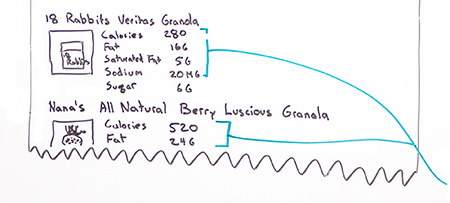 18 Rabbits Veritas Granola
Calories 280
Fat 16G
Saturated Fat 5G
Rabbits
Sodium 20MG
Sugar 6G
Nana's All Natural Berry Luscious Granola
Calories 520
Fat 24G